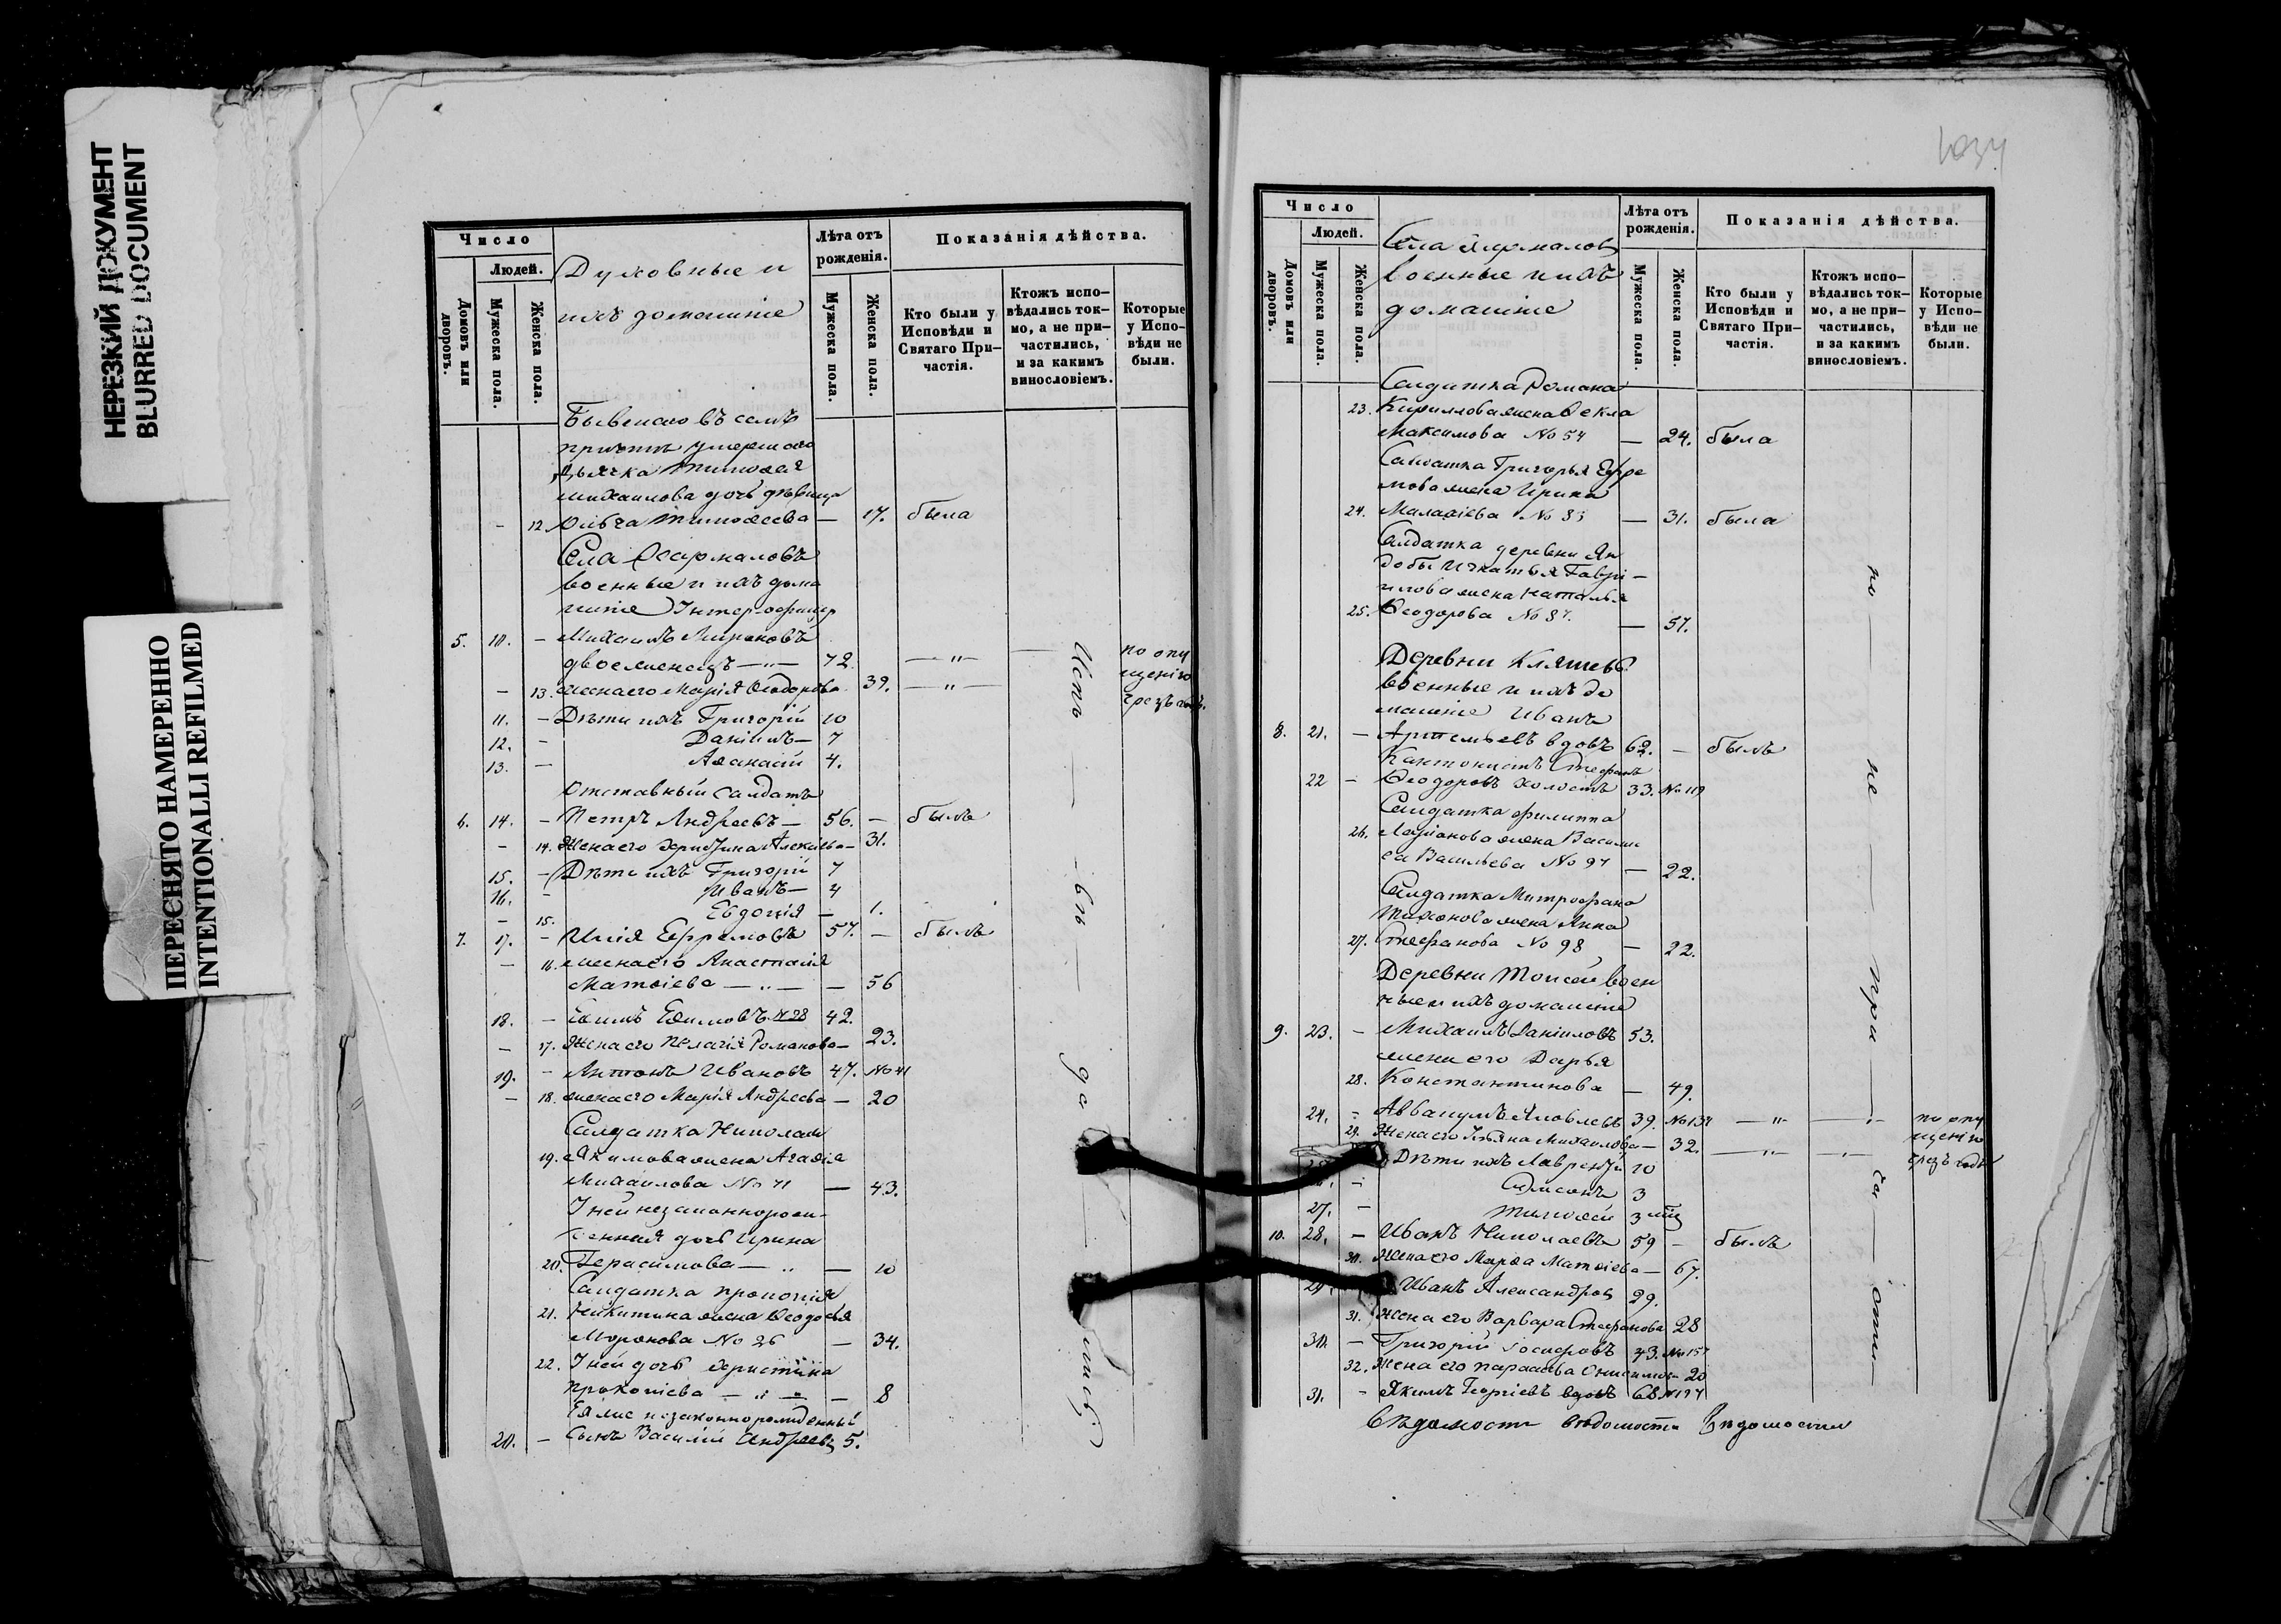 НЕРЕЗКИЙ ДОКУМЕНТ
BLURRED DOCUMENT
ПЕРЕСНЯТО НАМЕРЕННО
INTENTIONALLI REFILMED
Число
Людей.
Домовъ или дворовъ.
Мужеска пола.
Женска пола.
Духовные и
ихъ домашніе
Лѣта отъ рожденія.
Мужеска пола.
Женска пола.
Показанія дѣйства.
Кто были у Исповѣди и Святаго При-частія.
Ктожъ испо-вѣдались ток-мо, а не при-частились, и за какимъ винословіемъ.
Которые у Испо-вѣди не были.
Бывшаго въ семъ
причтѣ умершаго
Дьячка Тимоѳея
Михаилова дочь дѣвица
- 12. Тимоѳеева — 17. была
Села
военные и ихъ дома
шніе Унтерофицер
5. 10. — Михаилъ Мироновъ
двоеженецъ — 72. — по опу
щенію
- 13. жена его Марія Ѳеодорова 39. — чрезъ
11. — Дѣти ихъ Григорій 10
12. — Даніилъ — 7
13. — Аѳанасій 4.
Отставный Салдатъ
6. 14. — Петръ Андреевъ — 56. — былъ
- 14. Жена его Христина Алексіева — 31.
15. — Дѣти ихъ Григорій 7
16. — Иванъ — 4
- 15. Евдокія — 1.
7. 17. — Илія Ефремовъ 57. — былъ
- 16. жена его Анастасія
Матѳіева — — 56
18. — Евѳимовъ № 28 42.
- 17. Жена его Пелагія Романова — 23.
19. — Антонъ Ивановъ 47. № 41
- 18. жена его Марія Андреева — 20
Салдатка Николая
19. Якимова жена Агаѳія
Михаилова № 71 — 43.
У ней незаконнорож-
денная дочь Ирина
20. Герасимова — — 10
Салдатка Прокопія
21. Никитина жена Ѳеодосія
Миронова № 26 — 34.
22. У ней дочь Христина
Прокопіева — — 8
Ея же незаконнорожденный
20. — Сынъ Василій Андреевъ 5.
1034
Число
Людей.
Домовъ или дворовъ.
Мужеска пола.
Женска пола.
Села
военные и ихъ
домашніе
Лѣта отъ рожденія.
Мужеска пола.
Женска пола.
Показанія дѣйства.
Кто были у Исповѣди и Святаго При-частія.
Ктожъ испо-вѣдались ток-мо, а не при-частились, и за какимъ винословіемъ.
Которые у Испо-вѣди не были.
Салдатка Романа
23. Кириллова жена Ѳекла
Максимова № 54 — 24. была
Салдатка Григорья Ефре
мова жена Ирина
24. Малаѳіева № 83 — 31. была
Салдатка деревни Ян
добы Игнатья Гаврі-
илова жена Наталья
25. Ѳеодорова № 87. — 57.
Деревни
военные и ихъ до
машніе Иванъ
8. 21. — Артемьевъ вдовъ 62. — былъ
Кантонистъ Стефанъ
22 — Ѳеодоровъ холостъ 33. № 119
Салдатка Филиппа
26. Ларіонова жена Васили
са Васильева № 97 — 22.
Салдатка Митрофана
Тихонова жена Анна
27. Стефанова № 98 — 22.
Деревни Моисей воен
ные и ихъ домашніе
9. 23. — Михаилъ Даніиловъ 53.
жена его Дарья
28. Константинова — 49.
24. — Аввакумъ Яковлевъ 39. № 134 — по опу
щенію
29. Жена его Ульяна Михаилова — 32. — чрезъ
Дѣти ихъ Лаврентій 10
— 3
27. — Тимоѳей 3
10. 28. — Иванъ Николаевъ 59 — былъ
30. Жена его Марѳа Матѳіева — 67.
29. Иванъ Александровъ 29.
31. Жена его Варвара Стефанова 28
30. — Григорій Іосифовъ 43. № 157
32. Жена его Параскева Онисимова 20
31. — Якимъ Георгіевъ вдовъ 68
вѣдомости Вѣдомости